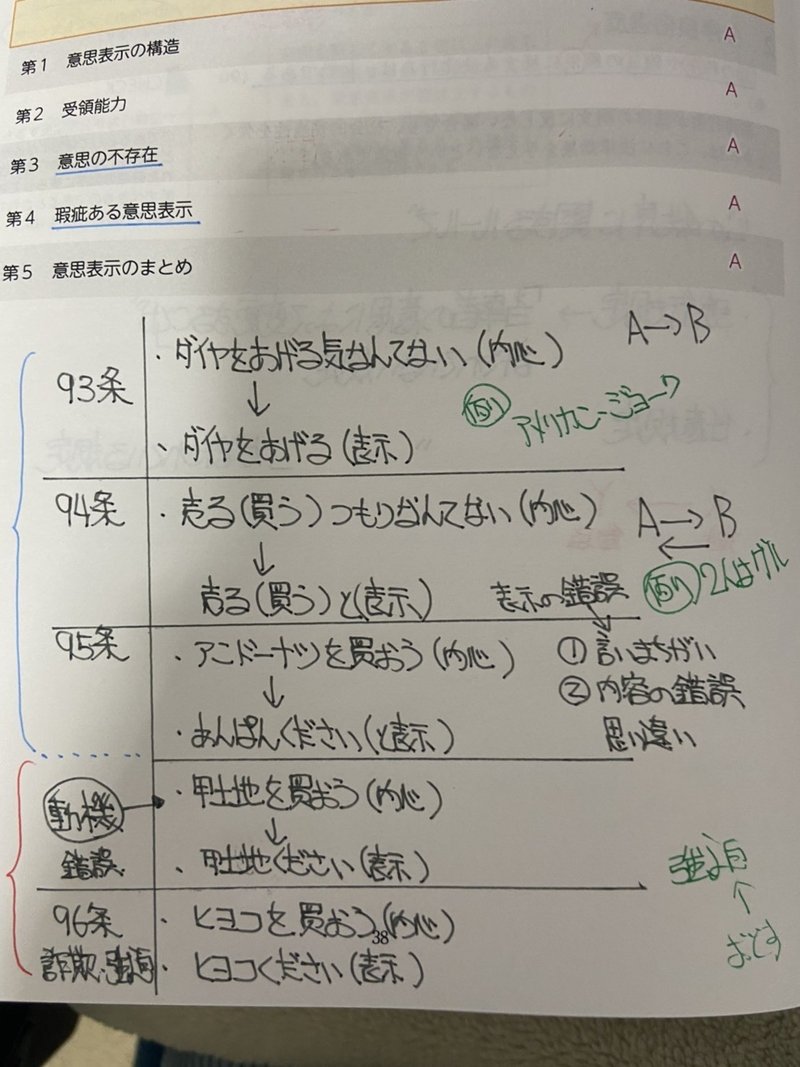 第1 意思表示の構造 A
第2 受領能力 A
第3 意思の不存在 A
第4 瑕疵ある意思表示 A
第5 意思表示のまとめ A
93条
・ダイヤをあげる気なんてない(内心)
A→B
↓
例 アメリカン・ジョーク
・ダイヤをあげる(表示)
94条
・売る(買う)つもりなんてない(内心)
A→B
←
↓
売る(買う)と(表示)
例 2人はグル
表示の錯誤
95条
・アンドーナツを買おう(内心)
① 言いまちがい
↓
② 内容の錯誤
思い違い
・あんぱんください(と表示)
動機
錯誤
・甲土地を買おう(内心)
↓
・甲土地ください(表示)
強迫
↑
おどす
96条
詐欺・強迫
・ヒヨコを買おう(内心)
・ヒヨコください(表示)
38